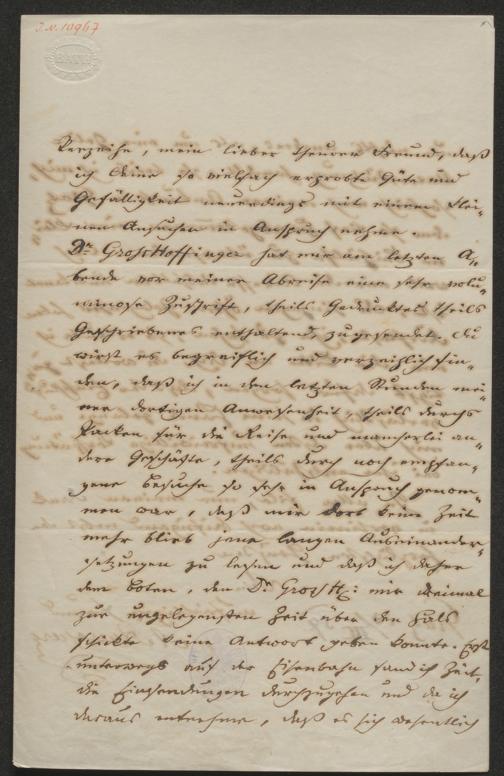 I.N. 10967
BATH
Verzeihe, mein lieber theurer Freund, daß
ich Deine so vielfach erprobte Güte und
Gefälligkeit neuerdings mit einem klei-
nen Ansuchen in Anspruch nehme.
Dr. GrossHoffinger hat mir am letzten A-
bende vor meiner Abreise eine sehr volu-
minose Zuschrift, theils Gedrucktes theils
Geschriebenes enthaltend, zugesendet. Du
wirst es begreiflich und verzeihlich fin-
den, daß ich in den letzten Stunden mei-
ner dortigen Anwesenheit, theils durchs
Packen für die Reise und mancherlei an-
dere Geschäfte, theils durch noch empfan-
gene Besuche so sehr in Anspruch genom-
men war, daß mir dort keine Zeit
mehr blieb jene langen Auseinander-
setzungen zu lesen und daß ich daher
dem Boten, den Dr. GrossH: mir dreimal
zur ungelegensten Zeit über den Hals
schickte keine Antwort geben konnte. Erst
unterwegs auf der Eisenbahn fand ich Zeit,
die Einsendungen durchzugehen und da ich
daraus entnehme, daß es sich wesentlich